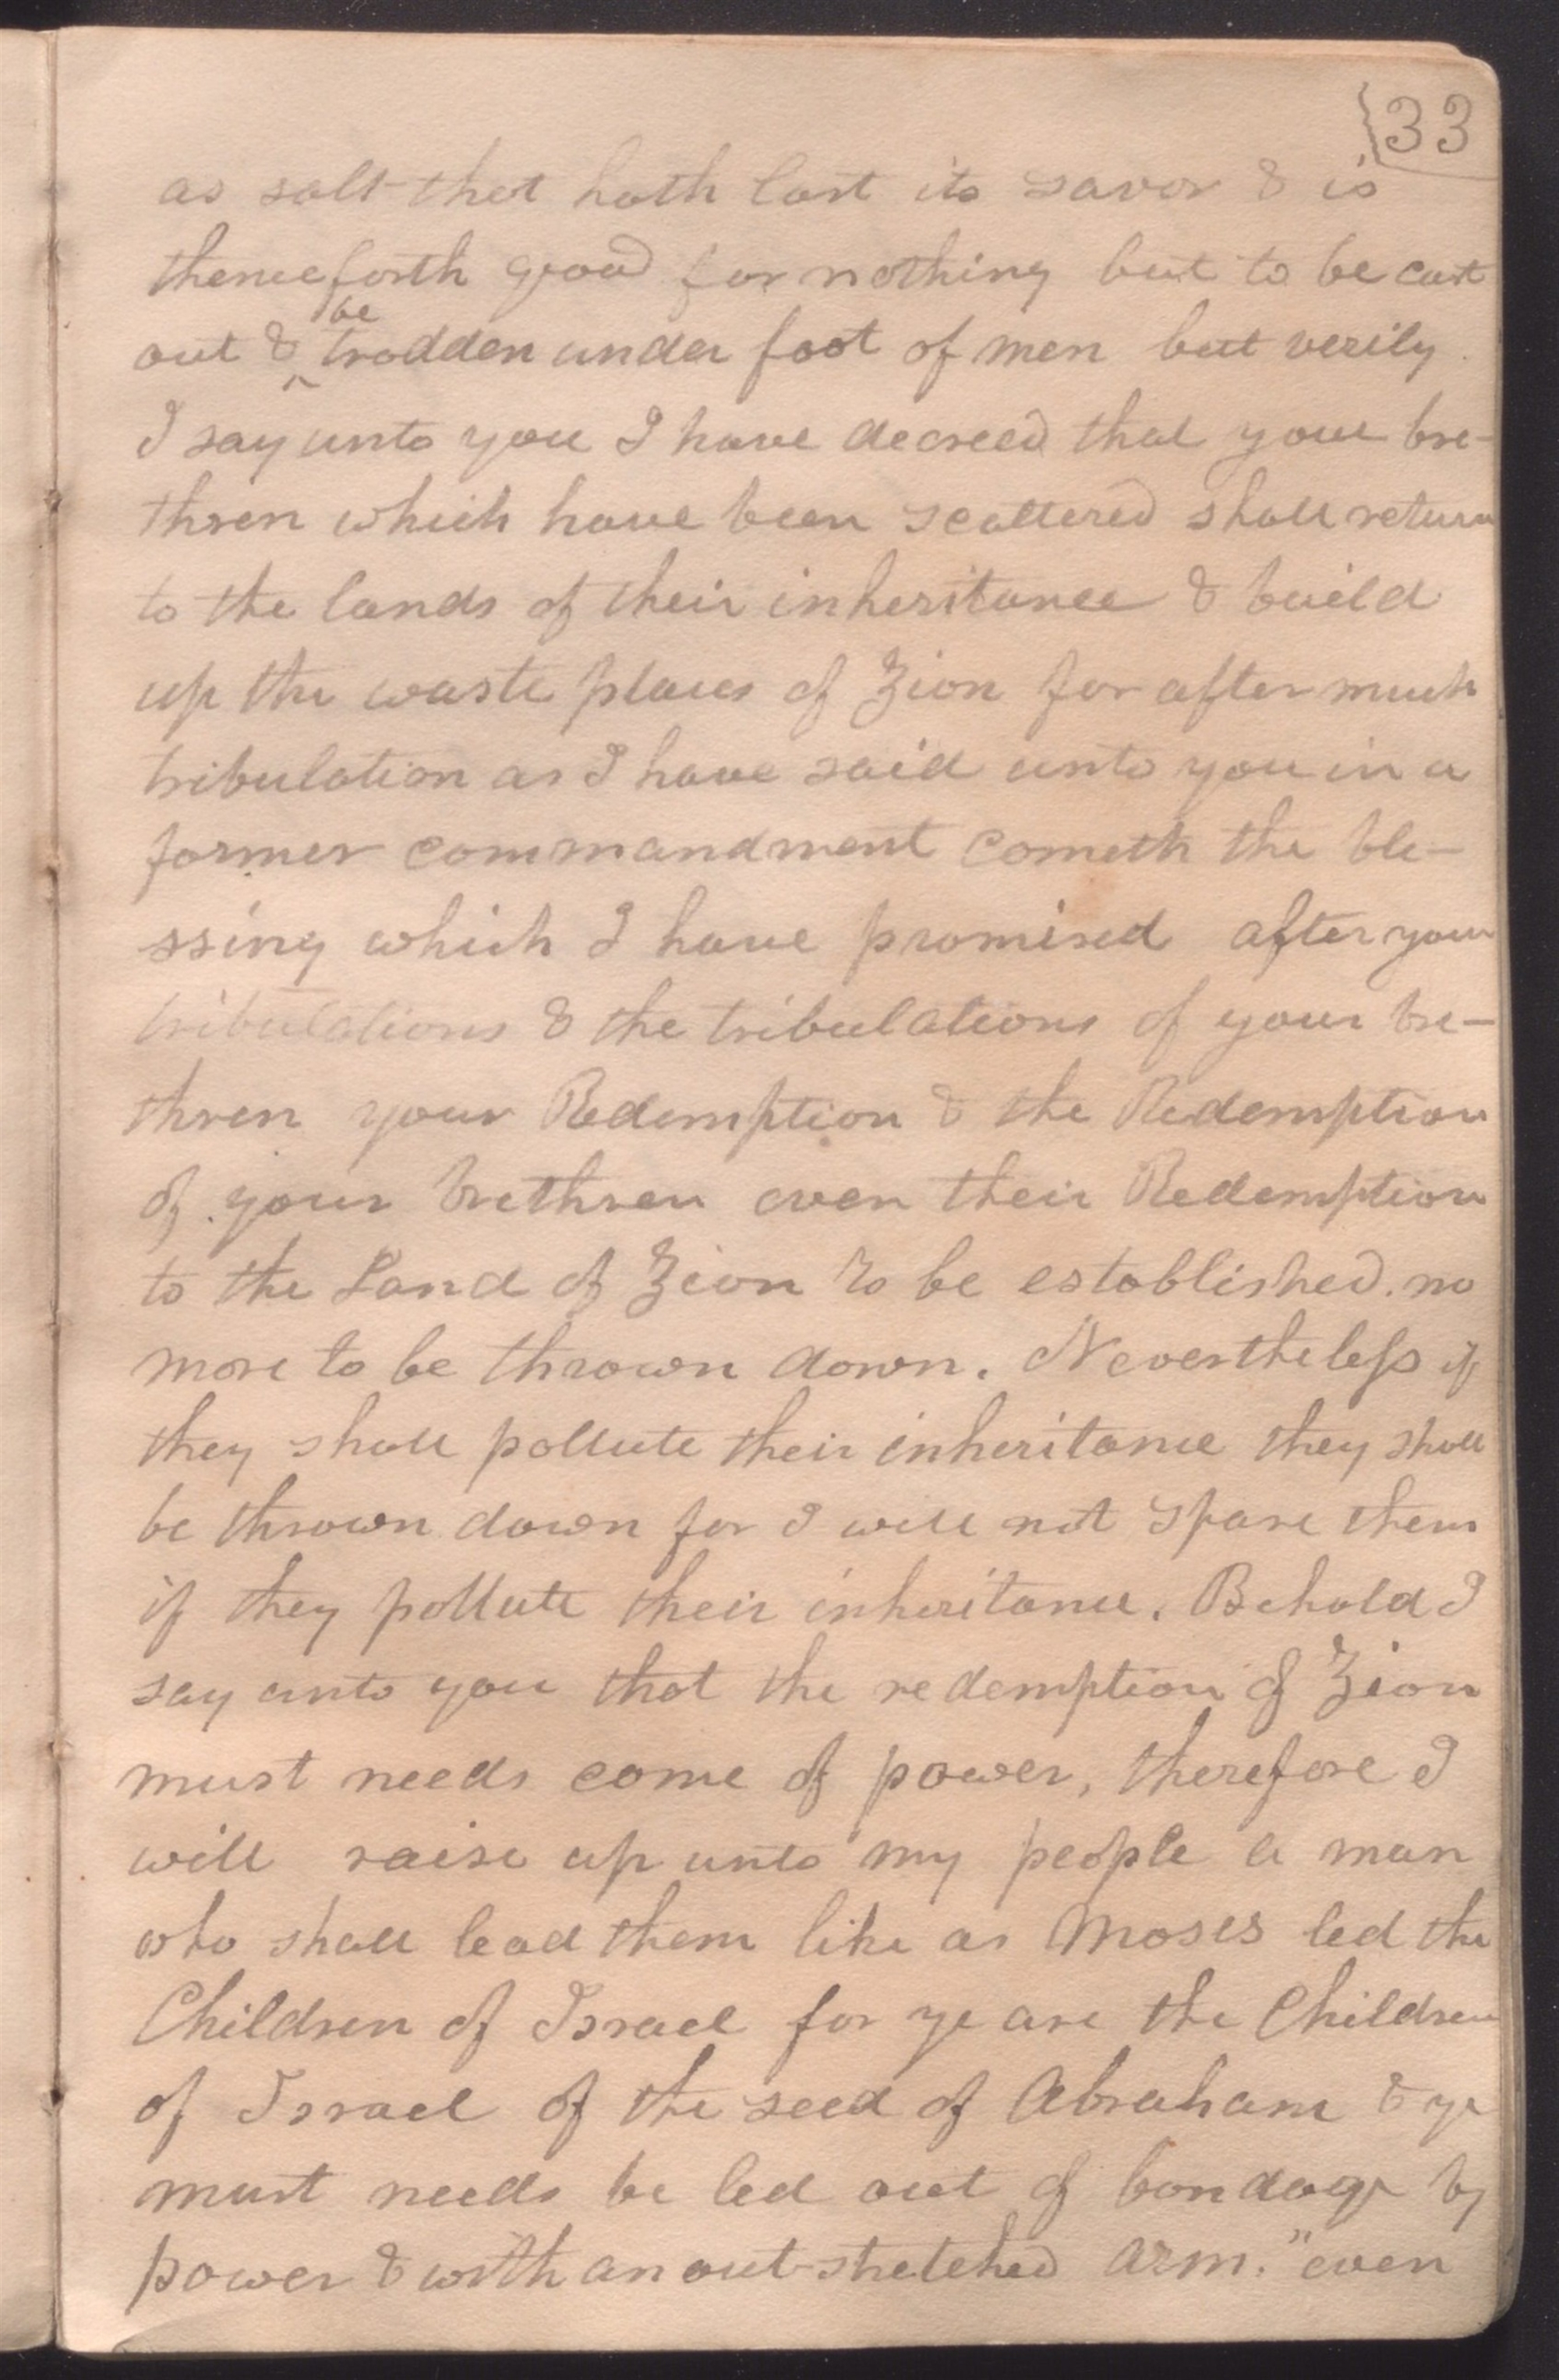 33
as salt that hath lost its savor & is
thenceforth good for nothing but to be cast
be
out & trodden under foot of men but verily
I say unto you I have decreed that your bre-
thren which have been scattered shall return
to the lands of their inheritance & build
up the waste places of Zion for after much
tribulation as I have said unto you in a
former commandment cometh the ble-
ssing which I have promised after your
tribulations & the tribulations of your bre-
thren your Redemption & the Redemption
of your brethren even their Redemption
to the Land of Zion to be established. no
more to be thrown down. Nevertheless if
they shall pollute their inheritance they shall
be thrown down for I will not spare them
if they pollute their inheritance. Behold I
say unto you that the redemption of Zion
must needs come of power, therefore I
will raise up unto my people a man
who shall lead them like as Moses led the
Children of Israel for ye are the Children
of Israel of the seed of Abraham & ye
must needs be led out of bondage by
power & with an out-stretched arm." even